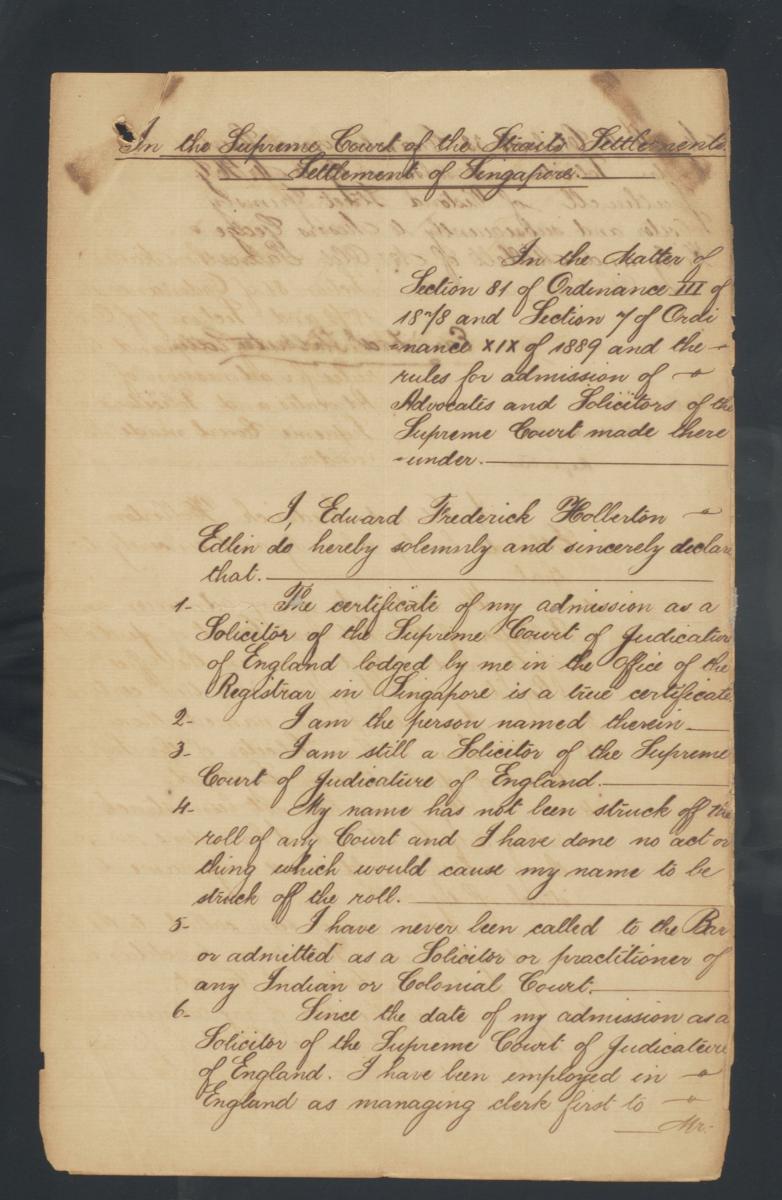 In the Supreme Court of the Straits Settlements
Settlement of Singapore.
In the Matter of
Section 81 of Ordinance III of
1878 and Section 7 of Ordi
-nance XIX of 1889 and the
rules for admission of
Advocates and Solicitors of the
Supreme Court made there
-under.
I, Edward Frederick Hollerton
Edlin do hereby solemnly and sincerely declare
that.
1- The certificate of my admission as a
Solicitor of the Supreme Court of Judicature
of England lodged by me in the Office of the
Registrar in Singapore is a true certificate.
2- I am the person named therein
3- I am still a Solicitor of the Supreme
Court of Judicature of England.
4- My name has not been struck off the
roll of any Court and I have done no act or
thing which would cause my name to be
struck off the roll.
5- I have never been called to the Bar
or admitted as a Solicitor or practitioner of
any Indian or Colonial Court.
6- Since the date of my admission as a
Solicitor of the Supreme Court of Judicature
of England. I have been employed in
England as managing clerk first to
Mr.